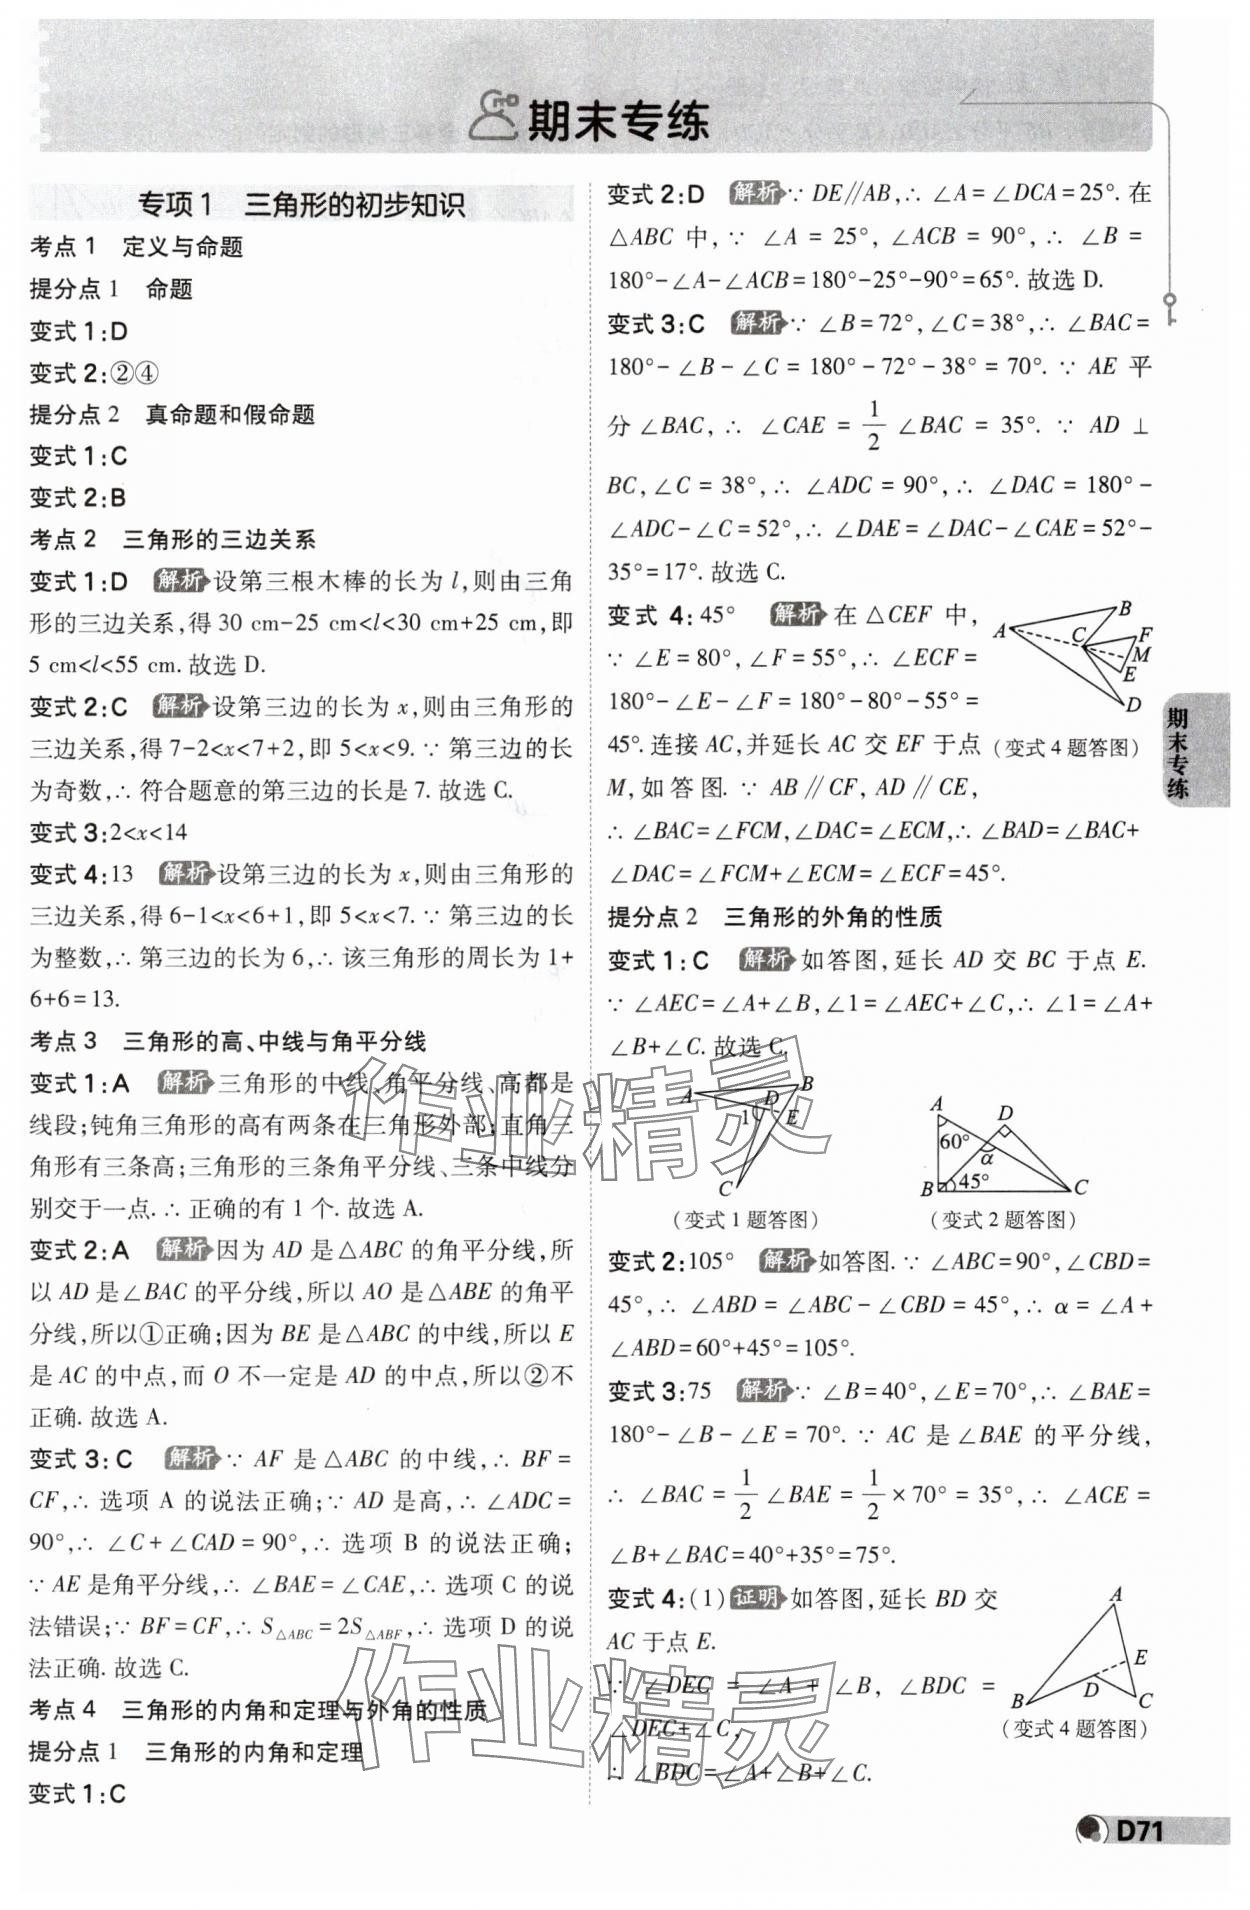 期末专练
专项1 三角形的初步知识
考点1 定义与命题
提分点1 命题
变式1:D
变式2:②④
提分点2 真命题和假命题
变式1:C
变式2:B
考点2 三角形的三边关系
变式1:D 解析 设第三根木棒的长为l,则由三角
形的三边关系,得30 cm-25 cm<l<30 cm+25 cm,即
5 cm<l<55 cm.故选D.
变式2:C 解析 设第三边的长为x,则由三角形的
三边关系,得7-2<x<7+2,即5<x<9.∵第三边的长
为奇数,∴符合题意的第三边的长是7.故选C.
变式3:2<x<14
变式4:13 解析 设第三边的长为x,则由三角形的
三边关系,得6-1<x<6+1,即5<x<7.∵第三边的长
为整数,∴第三边的长为6,∴该三角形的周长为1+
6+6=13.
考点3 三角形的高、中线与角平分线
变式1:A 解析 三角形的中线、角平分线、高都是
线段;钝角三角形的高有两条在三角形外部;直角三
角形有三条高;三角形的三条角平分线、三条中线分
别交于一点.∴正确的有1个.故选A.
变式2:A 解析 因为AD是△ABC的角平分线,所
以AD是∠BAC的平分线,所以AO是△ABE的角平
分线,所以①正确;因为BE是△ABC的中线,所以E
是AC的中点,而O不一定是AD的中点,所以②不
正确.故选A.
变式3:C 解析 ∵AF是△ABC的中线,∴BF=
CF,∴选项A的说法正确;∵AD是高,∴∠ADC=
90°,∴∠C+∠CAD=90°,∴选项B的说法正确;
∵AE是角平分线,∴∠BAE=∠CAE,∴选项C的说
法错误;∵BF=CF,∴S△ABC=2S△ABF,∴选项D的说
法正确.故选C.
考点4 三角形的内角和定理与外角的性质
提分点1 三角形的内角和定理
变式1:C
变式2:D 解析 ∵DE∥AB,∴∠A=∠DCA=25°.在
△ABC中,∵∠A=25°,∠ACB=90°,∴∠B=
180°-∠A-∠ACB=180°-25°-90°=65°.故选D.
变式3:C 解析 ∵∠B=72°,∠C=38°,∴∠BAC=
180°-∠B-∠C=180°-72°-38°=70°.∵AE平
分∠BAC,∴∠CAE=1/2∠BAC=35°.∵AD⊥
BC,∠C=38°,∴∠ADC=90°,∴∠DAC=180°-
∠ADC-∠C=52°,∴∠DAE=∠DAC-∠CAE=52°-
35°=17°.故选C.
变式4:45° 解析 在△CEF中,
∵∠E=80°,∠F=55°,∴∠ECF=
180°-∠E-∠F=180°-80°-55°=
45°.连接AC,并延长AC交EF于点
M,如答图.∵AB∥CF,AD∥CE,
∴∠BAC=∠FCM,∠DAC=∠ECM,∴∠BAD=∠BAC+
∠DAC=∠FCM+∠ECM=∠ECF=45°.
A B C F M E D
(变式4题答图)
提分点2 三角形的外角的性质
变式1:C 解析 如答图,延长AD交BC于点E.
∵∠AEC=∠A+∠B,∠1=∠AEC+∠C,∴∠1=∠A+
∠B+∠C.故选C.
A B D 1 E C
(变式1题答图)
A D 60° α B 45° C
(变式2题答图)
变式2:105° 解析 如答图.∵∠ABC=90°,∠CBD=
45°,∴∠ABD=∠ABC-∠CBD=45°,∴α=∠A+
∠ABD=60°+45°=105°.
变式3:75 解析 ∵∠B=40°,∠E=70°,∴∠BAE=
180°-∠B-∠E=70°.∵AC是∠BAE的平分线,
∴∠BAC=1/2∠BAE=1/2×70°=35°,∴∠ACE=
∠B+∠BAC=40°+35°=75°.
变式4:(1)证明 如答图,延长BD交
AC于点E.
∵∠DEC=∠A+∠B,∠BDC=
∠DEC+∠C,
∴∠BDC=∠A+∠B+∠C.
A E B D C
(变式4题答图)
期末专练
D71
作业精灵
作业精灵